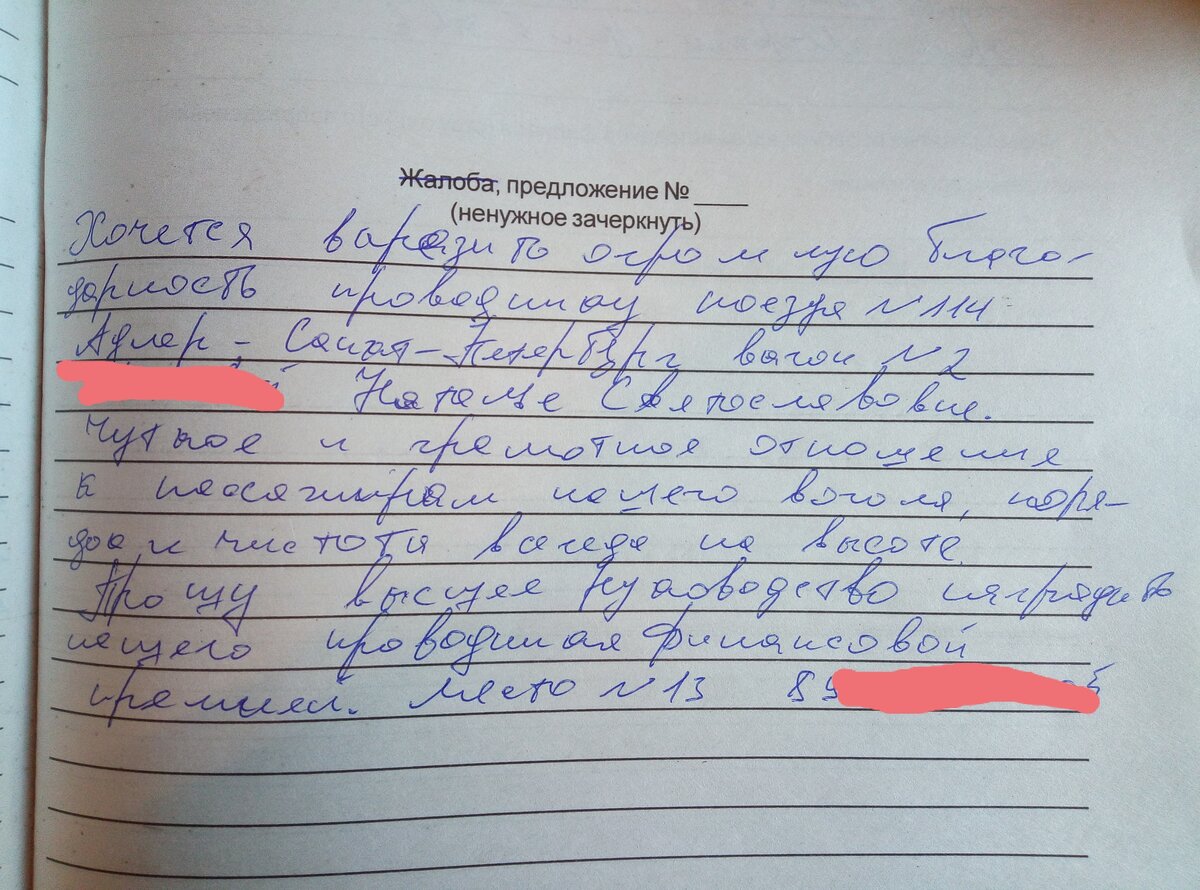 Жалоба, предложение № ____
(ненужное зачеркнуть)
Хочется выразить огромную благо-
дарность проводнику поезда №114
Адлер - Санкт-Петербург вагон №2
Наталье Святославовне.
Чуткое и грамотное отношение
к пассажирам нашего вагона, поря-
док и чистота всегда на высоте.
Прошу высшее руководство наградить
нашего проводника финансовой
премией. Место №13 89